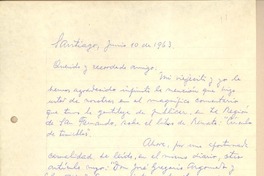 Santiago, Junio 10 de 1963
Querido y recordado amigo:
Mi viejecita y yo le
hemos agradecido infinito la mención que hizo
usted de nosotros en el magnífico comentario
que tuvo la gentileza de publicar, en La Región
de San Fernando, sobre el libro de Renato: "Cuarto
de tinieblas".
Ahora, por una afortunada
casualidad he leído, en el mismo diario, otro
artículo suyo: Don José Gregorio Argomedo y